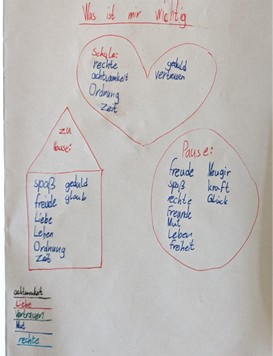 Was ist mir wichtig
Schule:
rechte
achtsamkeit
Ordnung
Zeit
geduld
vertrauen
zu
Hause:
spaß
freude
Liebe
Leben
Ordnung
zeit
geduld
glaub
Pause:
freude
spaß
rechte
Freunde
Mut
Leben
freiheit
Neugir
kraft
Glück
achtsamkeit
Liebe
Vertrauen
Mut
rechte